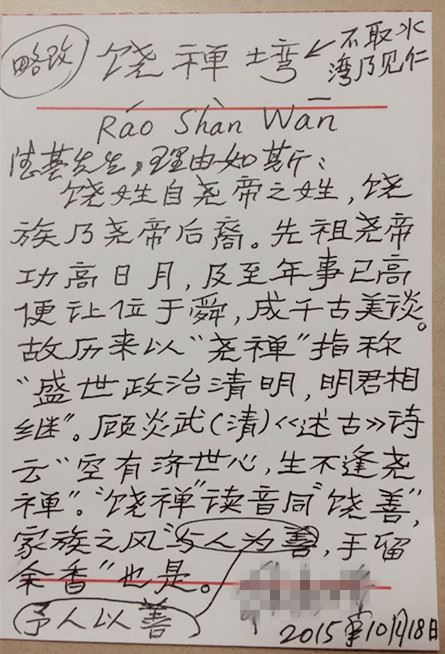 略改
饶禅塆
不取水
湾乃见仁
Ráo Shàn Wān
基先生,理由如斯:
饶姓自尧帝之姓,饶
族乃尧帝后裔。先祖尧帝
功高日月,及至年事已高
便让位于舜,成千古美谈。
故历来以“尧禅”指称
“盛世政治清明,明君相
继”。顾炎武(清)《述古》诗
云“空有济世心,生不逢尧
禅”。“饶禅”读音同“饶善”,
家族之风“与人为善,手留
余香”也是。
予人以善
2015年10月18日